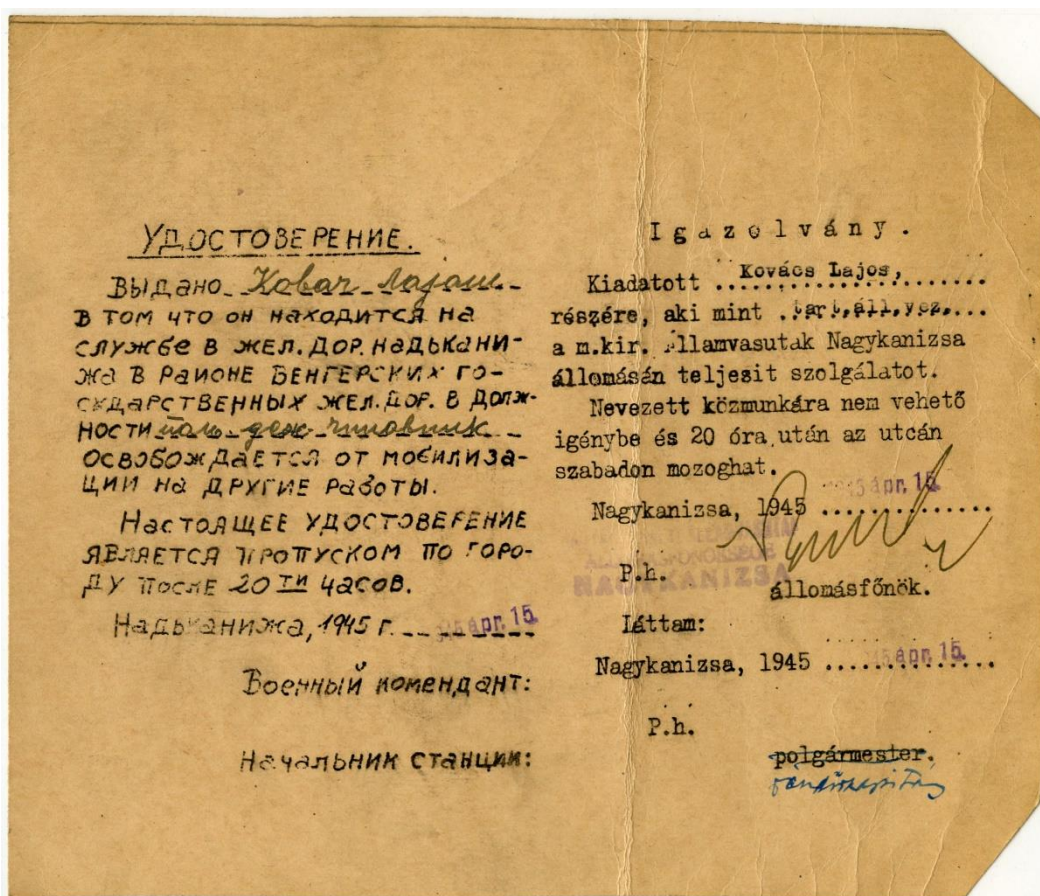 УДОСТОВЕРЕНИЕ.
Выдано Ковач Лаjош
в том что он находится на
службе в жел. дор. Надькани-
жа в раионе Венгерских го-
сударственных жел. дор. в долж-
ности чиновник
освобождается от мобилиза-
ции на другие работы.
Настоящее удостоверение
является пропуском по горо-
ду после 20 ти часов.
Надьканижа, 1945 г. ápr. 15.
Военный комендант:
Начальник станции:
Igazolvány.
Kiadatott Kovács Lajos,
részére, aki mint
a m.kir. Államvasutak Nagykanizsa
állomásán teljesit szolgálatot.
Nevezett közmunkára nem vehető
igénybe és 20 óra után az utcán
szabadon mozoghat.
Nagykanizsa, 1945 ápr. 15.
NAGYKANIZSA
P.h.
állomásfőnök.
Láttam:
Nagykanizsa, 1945 ápr. 15.
P.h.
polgármester.